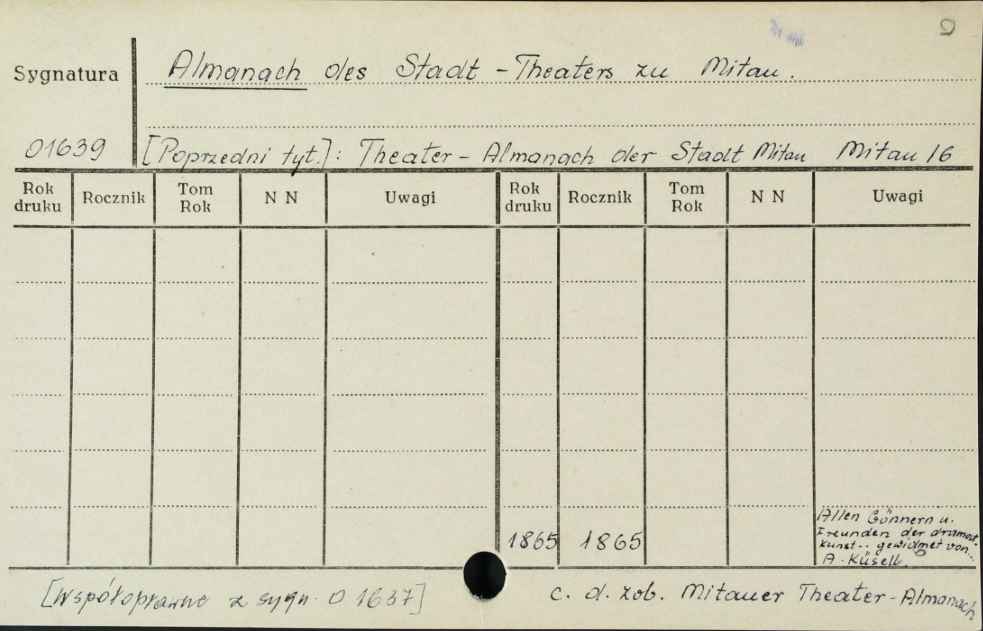 2
Sygnatura
Almanach des Stadt - Theaters zu Mitau.
01639
[Poprzedni tyt.]: Theater - Almanach der Stadt Mitau Mitau 16
Rok druku Rocznik Tom Rok N N Uwagi Rok druku Rocznik Tom Rok N N Uwagi
1865 1865
Allen Gönnern u.
Freunden der dramat.
Kunst.. gewidmet von..
A. Küsell.
[Współoprawne z sygn. O 1637]
c. d. zob. Mitauer Theater-Almanach